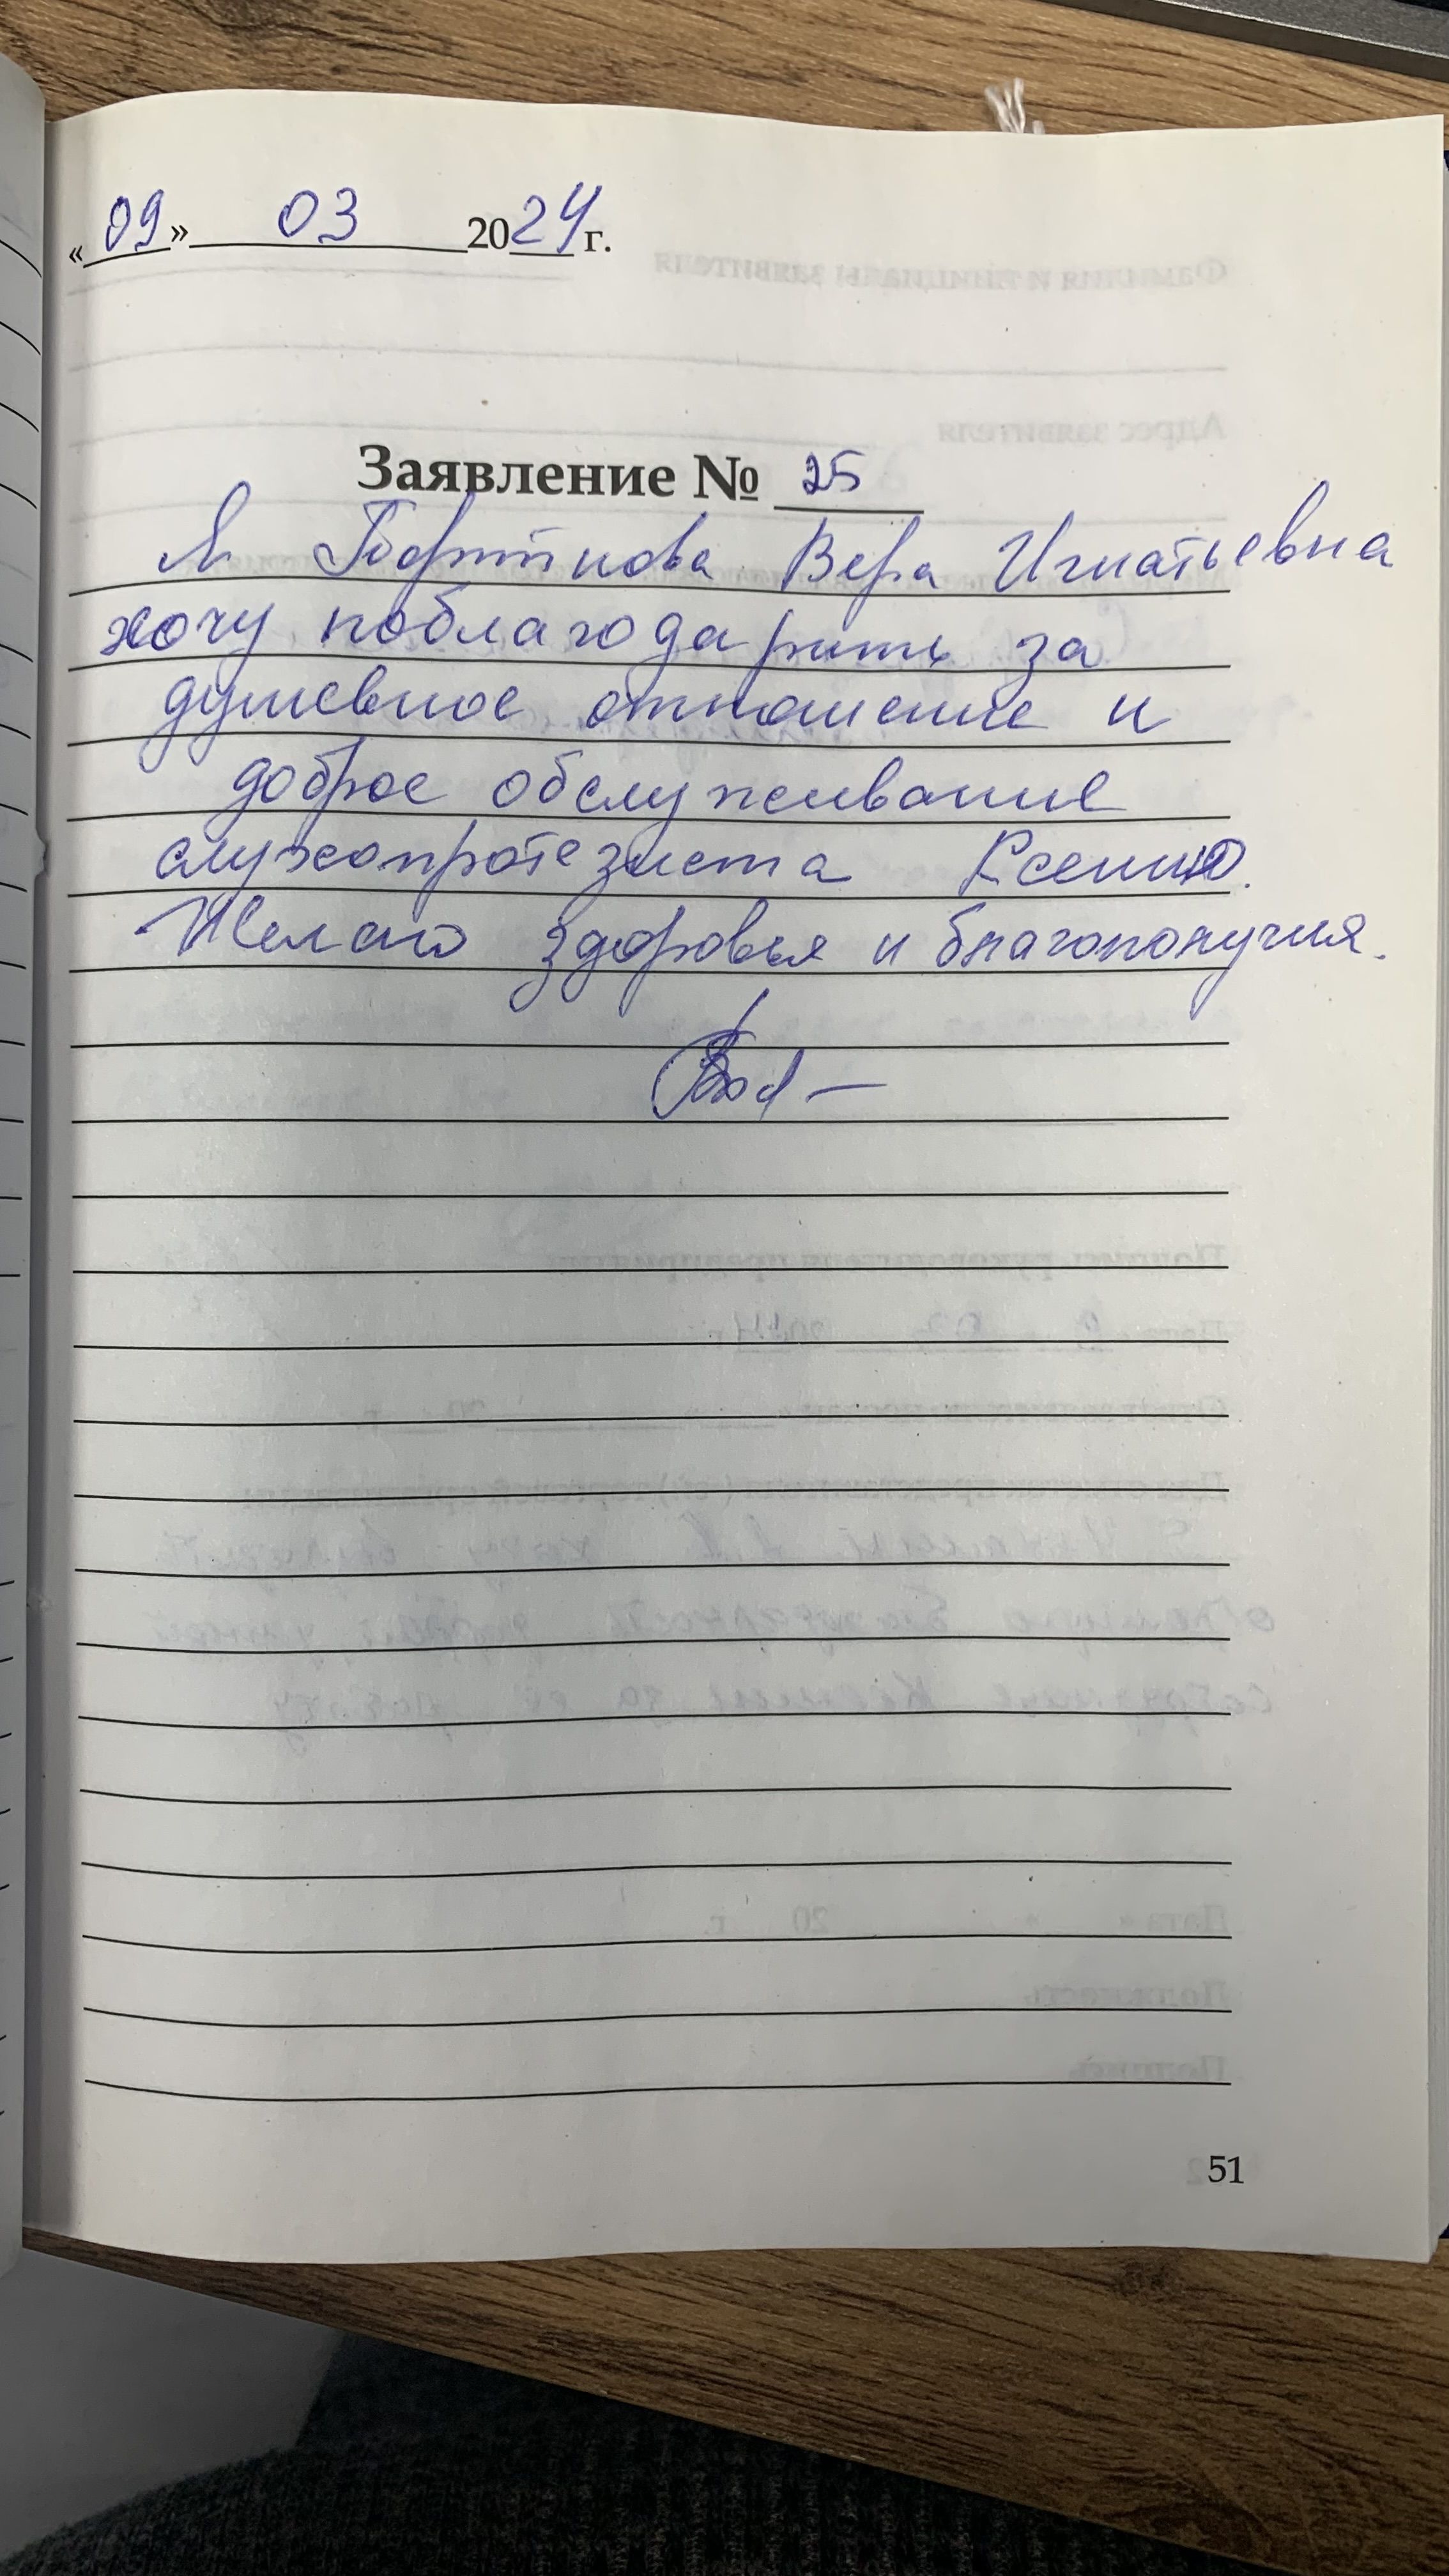 «09» 03 2024 г.
Заявление № 25
Я Портнова Вера Игнатьевна
хочу поблагодарить за
душевное отношение и
доброе обслуживание
слухопротезиста Ксению.
Желаю здоровья и благополучия.
51